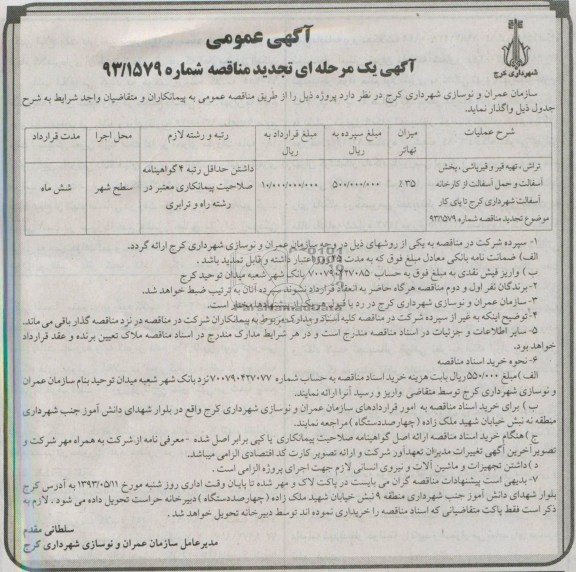 شهرداری کرج
آگهی عمومی
آگهی یک مرحله ای تجدید مناقصه شماره ۹۳/۱۵۷۹
سازمان عمران و نوسازی شهرداری کرج در نظر دارد پروژه ذیل را از طریق مناقصه عمومی به پیمانکاران و متقاضیان واجد شرایط به شرح
جدول ذیل واگذار نماید.
شرح عملیات
میزان تهاتر
مبلغ سپرده به ریال
مبلغ قرارداد به ریال
رتبه و رشته لازم
محل اجرا
مدت قرارداد
تراش ، تهیه قیر و قیرپاشی ، پخش
آسفالت و حمل آسفالت از کارخانه
آسفالت شهرداری کرج تا پای کار
موضوع تجدید مناقصه شماره ۹۳/۱۵۷۹
٪۳۵
۵۰۰/۰۰۰/۰۰۰
۱۰/۰۰۰/۰۰۰/۰۰۰
داشتن حداقل رتبه ۴ گواهینامه
صلاحیت پیمانکاری معتبر در
رشته راه و ترابری
سطح شهر
شش ماه
۱- سپرده شرکت در مناقصه به یکی از روشهای ذیل در وجه سازمان عمران و نوسازی شهرداری کرج ارائه گردد.
الف) ضمانت نامه بانکی معادل مبلغ فوق که به مدت ۹۵ روز اعتبار داشته و قابل تمدید باشد .
ب ) واریز فیش نقدی به مبلغ فوق به حساب ۷۰۰۷۹۰۴۲۷۰۸۵ بانک شهر شعبه میدان توحید کرج
۲- برندگان نفر اول و دوم مناقصه هرگاه حاضر به انعقاد قرارداد نشوند سپرده آنان به ترتیب ضبط خواهد شد.
۳- سازمان عمران و نوسازی شهرداری کرج در رد یا قبول هر یک از پیشنهادها مختار است.
۴- توضیح اینکه به غیر از سپرده شرکت در مناقصه کلیه اسناد و مدارک مربوط به پیمانکاران شرکت در مناقصه در نزد مناقصه گذار باقی می ماند.
۵- سایر اطلاعات و جزئیات در اسناد مناقصه مندرج است و در هر شرایط مدارک مندرج در اسناد مناقصه ملاک تعیین برنده و عقد قرارداد
خواهد بود.
۶- نحوه خرید اسناد مناقصه
الف) مبلغ ۵۵۰/۰۰۰ ریال بابت هزینه خرید اسناد مناقصه به حساب شماره ۷۰۰۷۹۰۴۲۷۰۷۷ نزد بانک شهر شعبه میدان توحید بنام سازمان عمران
و نوسازی شهرداری کرج توسط متقاضی واریز و رسید آنرا ارائه نمایند.
ب ) برای خرید اسناد مناقصه به امور قراردادهای سازمان عمران و نوسازی شهرداری کرج واقع در بلوار شهدای دانش آموز جنب شهرداری
منطقه نه نبش خیابان شهید ملک زاده ( چهارصددستگاه ) مراجعه نمایند.
ج ) هنگام خرید اسناد مناقصه ارائه اصل گواهینامه صلاحیت پیمانکاری یا کپی برابر اصل شده - معرفی نامه از شرکت به همراه مهر شرکت و
تصویر آخرین آگهی تغییرات مدیران تعهدآور شرکت و ارائه تصویر کارت کد اقتصادی الزامی میباشد.
د ) داشتن تجهیزات و ماشین آلات و نیروی انسانی لازم جهت اجرای پروژه الزامی است .
۷- بدیهی است پیشنهادات مناقصه گران می بایست در پاکت لاک و مهر شده تا پایان وقت اداری روز شنبه مورخ ۱۳۹۳/۰۵/۱۱ به آدرس کرج
بلوار شهدای دانش آموز جنب شهرداری منطقه ۹ نبش خیابان شهید ملک زاده ( چهارصددستگاه ) دبیرخانه حراست تحویل داده می شود . لازم به
ذکر است فقط پاکت متقاضیانی که اسناد مناقصه را خریداری نموده اند توسط دبیرخانه تحویل خواهد شد .
سلطانی مقدم
مدیرعامل سازمان عمران و نوسازی شهرداری کرج